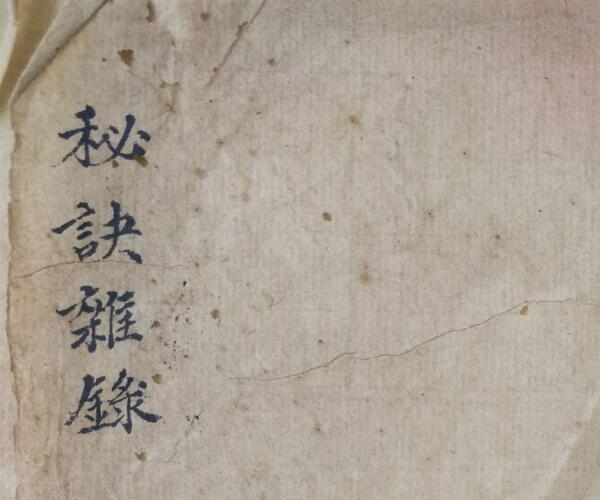 秘訣雜錄